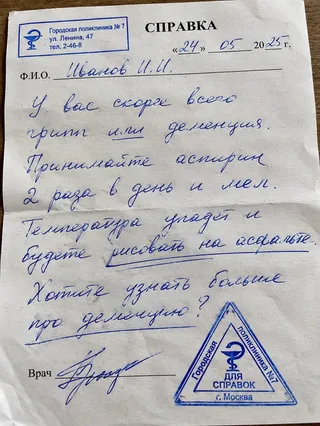 Городская поликлиника № 7
ул. Ленина, 47
тел. 2-46-8
СПРАВКА
«24» 05 2025 г.
Ф.И.О. Иванов И.И.
У вас скорее всего
грипп или деменция.
Принимайте аспирин
2 раза в день и мел.
Температура упадет и
будете рисовать на асфальте.
Хотите узнать больше
про деменцию?
Врач
Городская поликлиника №7
ДЛЯ
СПРАВОК
г. Москва